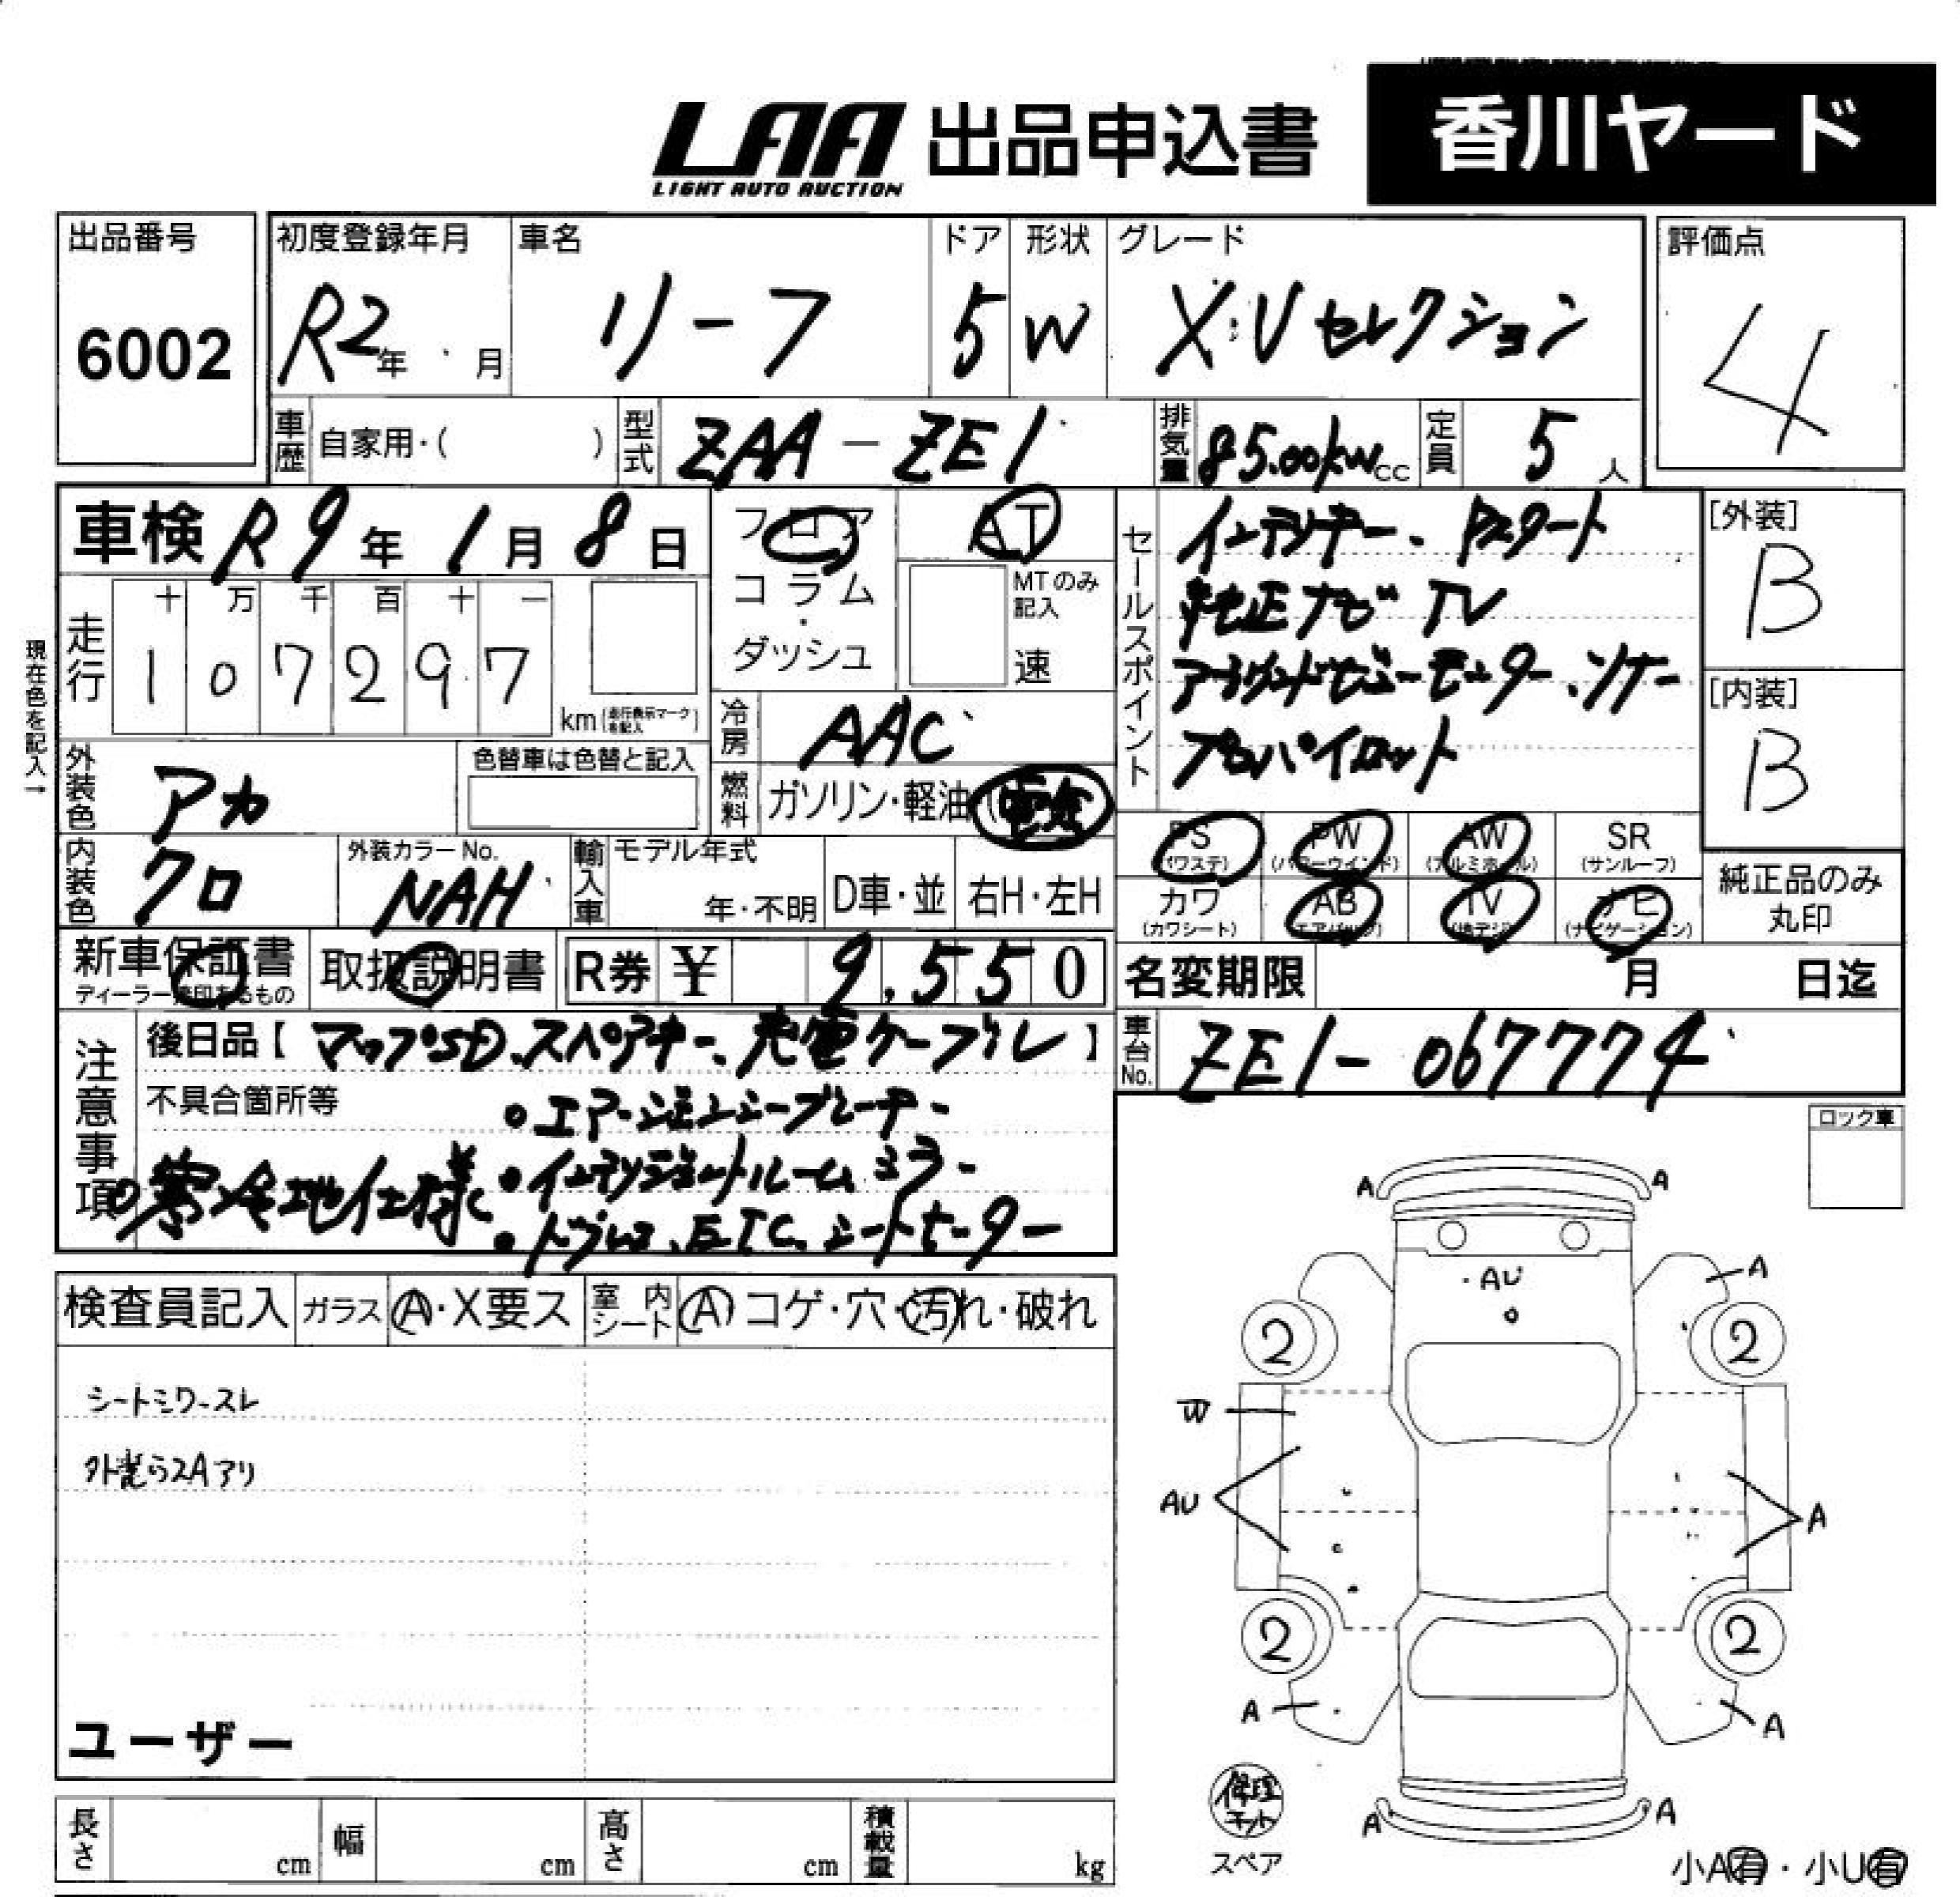 LAA 出品申込書 香川ヤード
LIGHT AUTO AUCTION
出品番号 初度登録年月 車名 ドア 形状 グレード 評価点
6002 R2年 月 リーフ 5 W X・Vセレクション 4
車歴 自家用・( ) 型式 ZAA-ZE1 排気量 85.00kW cc 定員 5 人
車検 R9年 1月 8日
フロア AT
コラム・ダッシュ
MTのみ記入
速
セールスポイント
インテリキー、Pスタート
純正ナビ TV
アラウンドビューモニター、ソナー
プロパイロット
[外装]
B
[内装]
B
現在色を記入→
走行 十 万 千 百 十 一
1 0 7 2 9 7
km (走行表示マークを記入)
冷房 AAC
外装色 アカ 色替車は色替と記入
燃料 ガソリン・軽油 (電気)
内装色 クロ 外装カラーNo. NAH 輸入車 モデル年式 年・不明 D車・並 右H・左H
PS (パワステ) PW (パワーウインド) AW (アルミホイール) SR (サンルーフ)
カワ (カワシート) AB (エアバッグ) TV (地デジ) ナビ (ナビゲーション)
純正品のみ
丸印
新車保証書 取扱説明書 R券 ¥ 9,550
ディーラー捺印あるもの
名変期限 月 日迄
車台No. ZE1-067774
注意事項
後日品【マップSD、スペアキー、充電ケーブル】
不具合箇所等
・エマージェンシーブレーキ
・寒冷地仕様 ・インテリジェントルームミラー
・ドラレコ、ETC、シートヒーター
ロック車
検査員記入 ガラス A・X要ス 室内シート A コゲ・穴・汚れ・破れ
シートミワ・スレ
外装らスAアリ
ユーザー
A A
AU
A
2 2
W
AU A
2 2
A A
A A
修理キット
スペア
小A有・小U有
長さ cm 幅 cm 高さ cm 積載量 kg